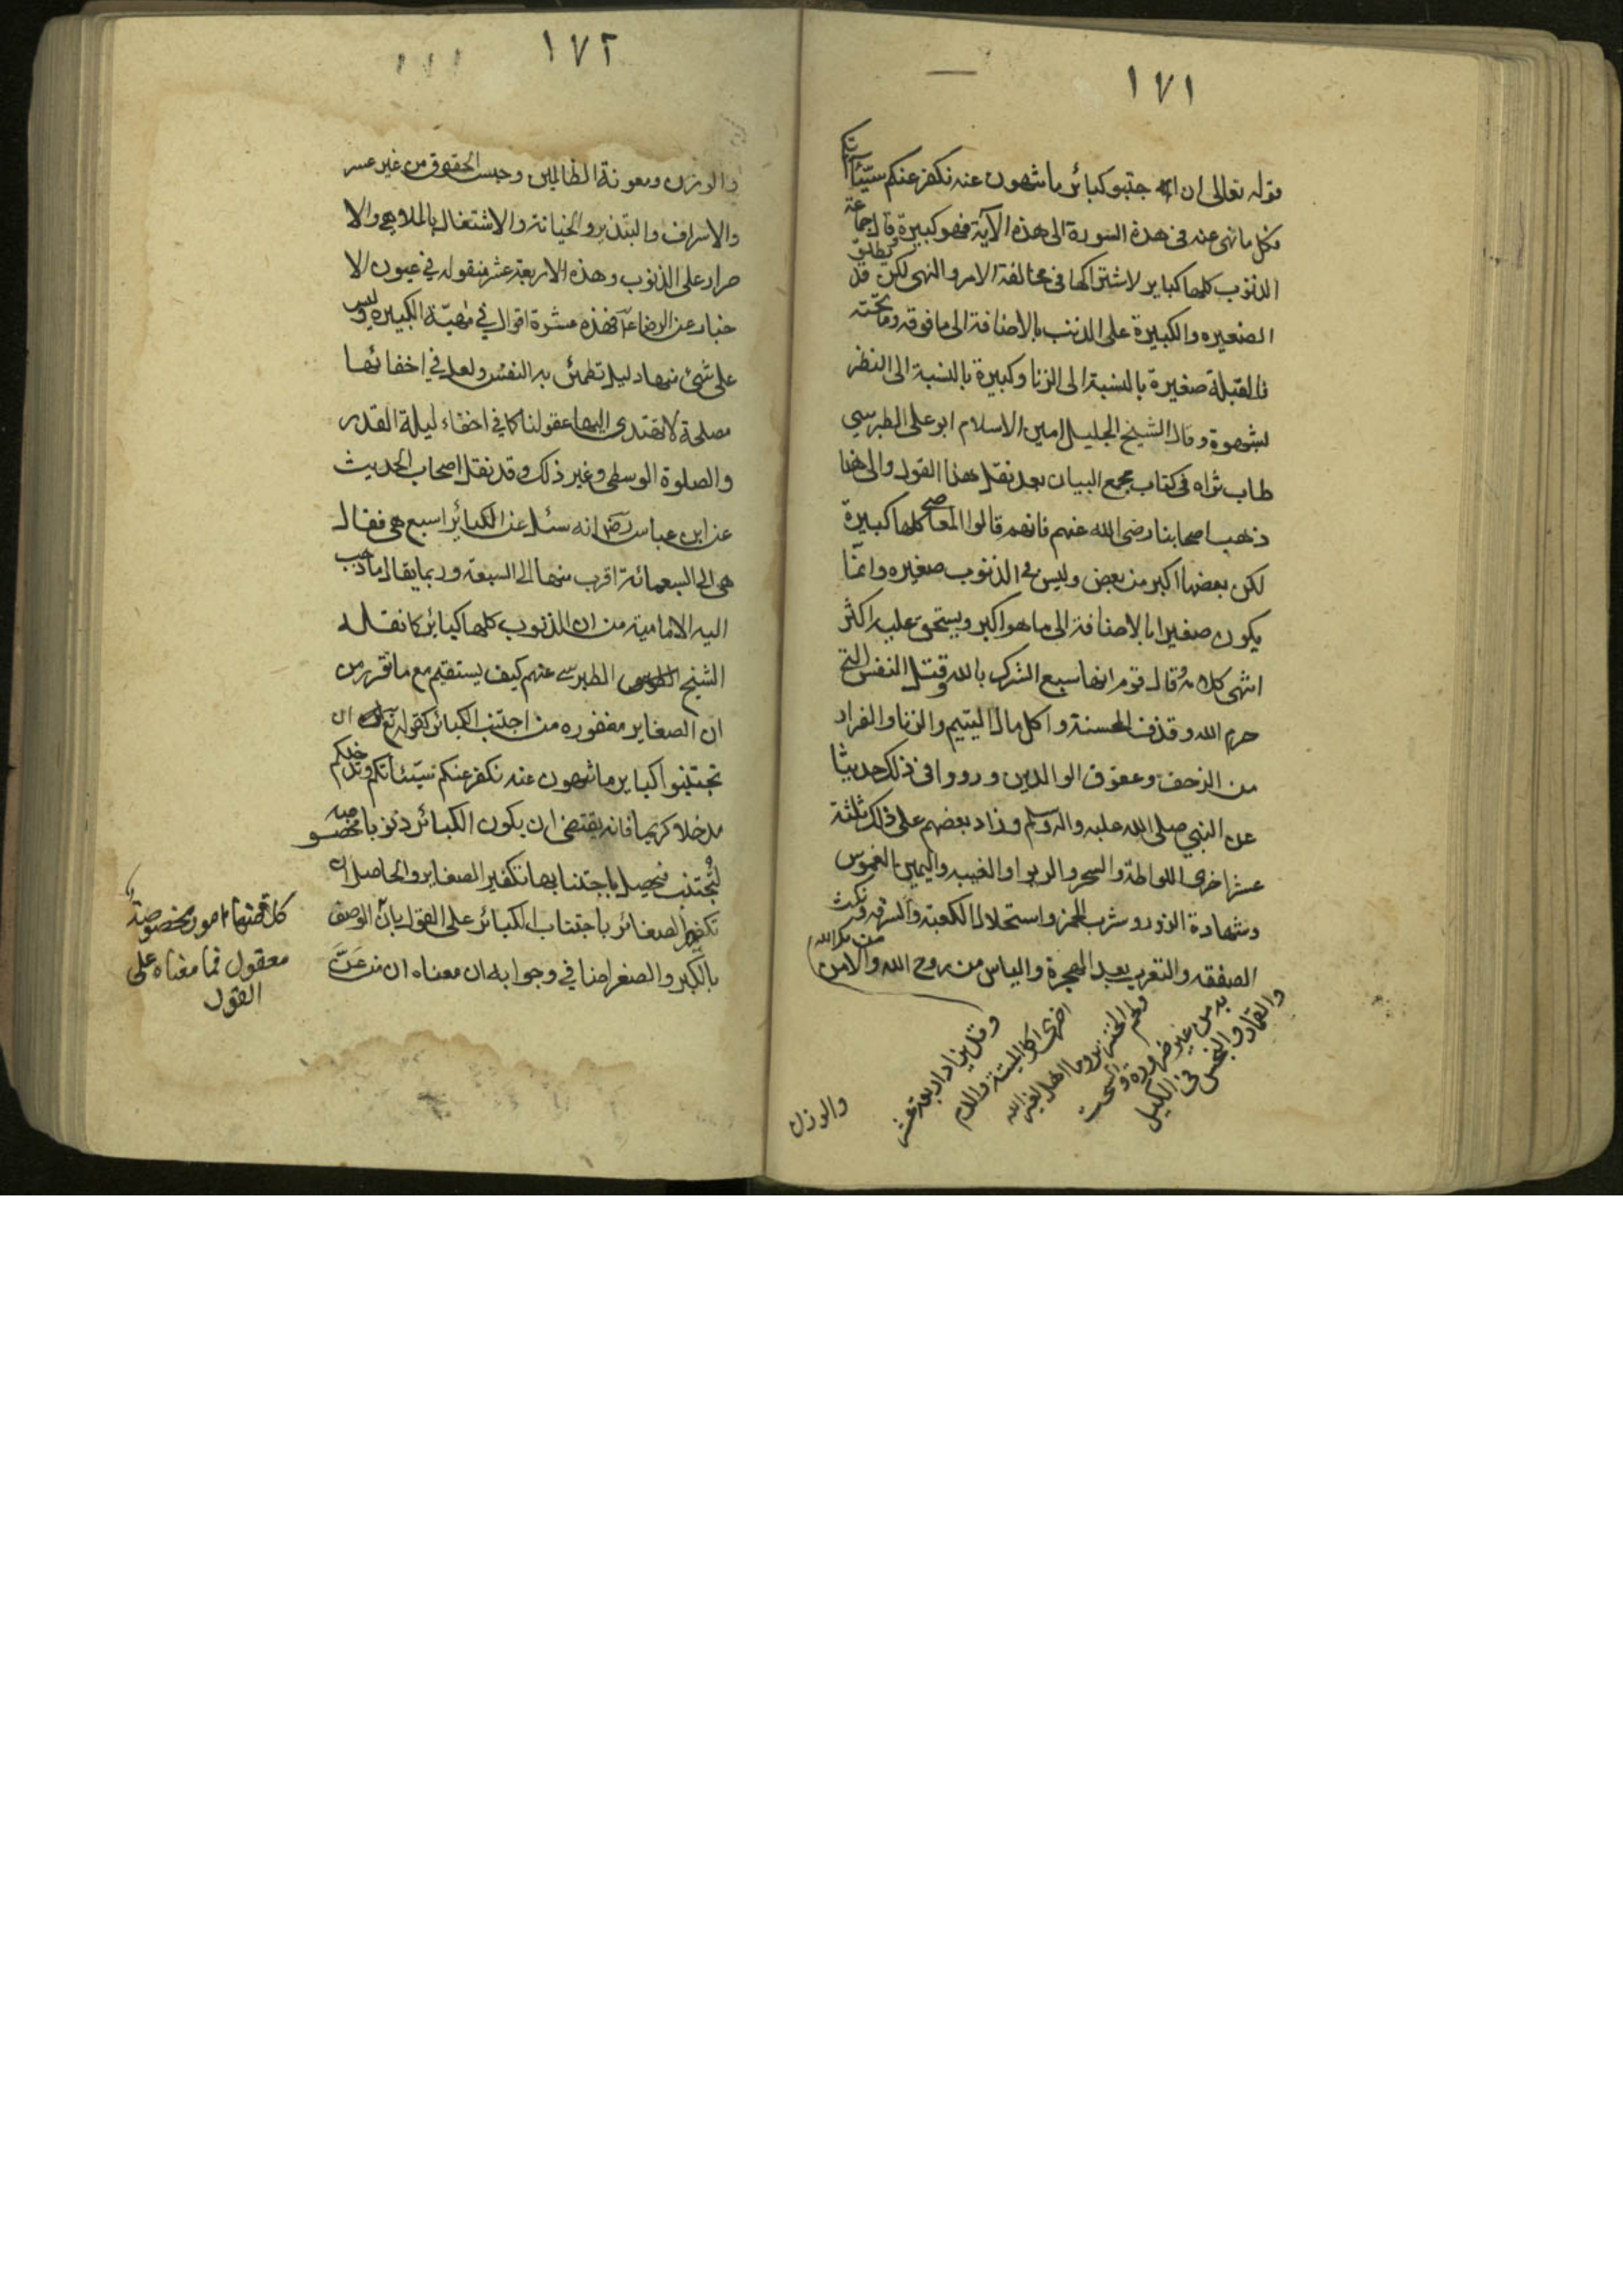 ١٧١
قوله تعالى ان جتبو كبائر ما تنهون عنه نكفر عنكم سيّئاتكم
فكل ما نهى عنه فى هذه السورة الى هذه الآية فهو كبيرة وقال جماعة
الذنوب كلها كباير لاشتراكها فى مخالفة الامر والنهى لكن قد يطلق
الصغيره والكبيرة على الذنب بالاضافة الى ما فوقه وما تحته
فالقبلة صغيرة بالنسبة الى الزنا وكبيرة بالنسبة الى النظر
لشهوة وقال الشيخ الجليل امين الاسلام ابو على الطبرسي
طاب ثراه فى كتاب مجمع البيان بعد نقل هذا القول والى هذا
ذهب اصحابنا رضى الله عنهم فانهم قالوا المعاصى كلها كبيرة
لكن بعضها اكبر من بعض وليس فى الذنوب صغيره وانّما
يكون صغيرا بالاضافة الى ما هو اكبر ويستحق عليه اكثر
انتهى كلامه وقال قوم انها سبع الشرك بالله وقتل النفس التى
حرم الله وقذف المحسنة واكل مال اليتيم والزنا والفرار
من الزحف وعقوق الوالدين ورووا فى ذلك حديثا
عن النبي صلى الله عليه واله وسلم وزاد بعضهم على ذلك ثلثة
عشر اخرى اللواطة والسحر والربوا والغيبه واليمين الغموس
وشهادة الزور وشرب الخمر واستحلال الكعبة والسرقه ونكث
الصفقه والتعرب بعد الهجرة والياس من روح الله والامن من مكر الله
وقد يزاد اربعة عشر
اخرى اكل الميتة والدم
ولحم الخنزير وما اهل لغير الله
به من غير ضرورة والسحت
والقمار والبخس فى الكيل
والوزن
١٧٢
والوزن ومعونة الظالمين وحبس الحقوق من غير عسر
والاسراف والتبذير والخيانة والاشتغال بالملاهى والا
صرار على الذنوب وهذه الاربعة عشر منقوله في عيون الا
خبار عن الرضا عآ فهذه عشرة اقوال في مهيّة الكبيره وليس
على شئ منها دليل تطمئن به النفس ولعل في اخفائها
مصلحة لا تهتدى اليها عقولنا كما في اخفاء ليلة القدر
والصلوة الوسطى وغير ذلك وقد نقل اصحاب الحديث
عن ابن عباس رضى انه سئل عن الكبائر اسبع هى فقال
هى الى السبعمائة اقرب منها الى السبعة وربما يقال ما ذهب
اليه الامامية من ان الذنوب كلها كبائر كما نقله
الشيخ الطبرسى عنهم كيف يستقيم مع ما تقرر من
ان الصغاير مغفوره من اجتنب الكبائر كقوله تعالى ان
تجتنبوا كباير ما تنهون عنه نكفر عنكم سيّئاتكم وندخلكم
مدخلا كريما فانه يقتضى ان يكون الكبائر ذنوبا مخصوصه
لتُجتنب فيحصل باجتنابها تكفير الصغاير والحاصل ان
تكفير الصغائر باجتناب الكبائر على القول بانّ الوصف
بالكبر والصغر اضافي وجوابه ان معناه ان من عَنَّ
كل منها امور مخصوصة
معقول فما معناه على
القول